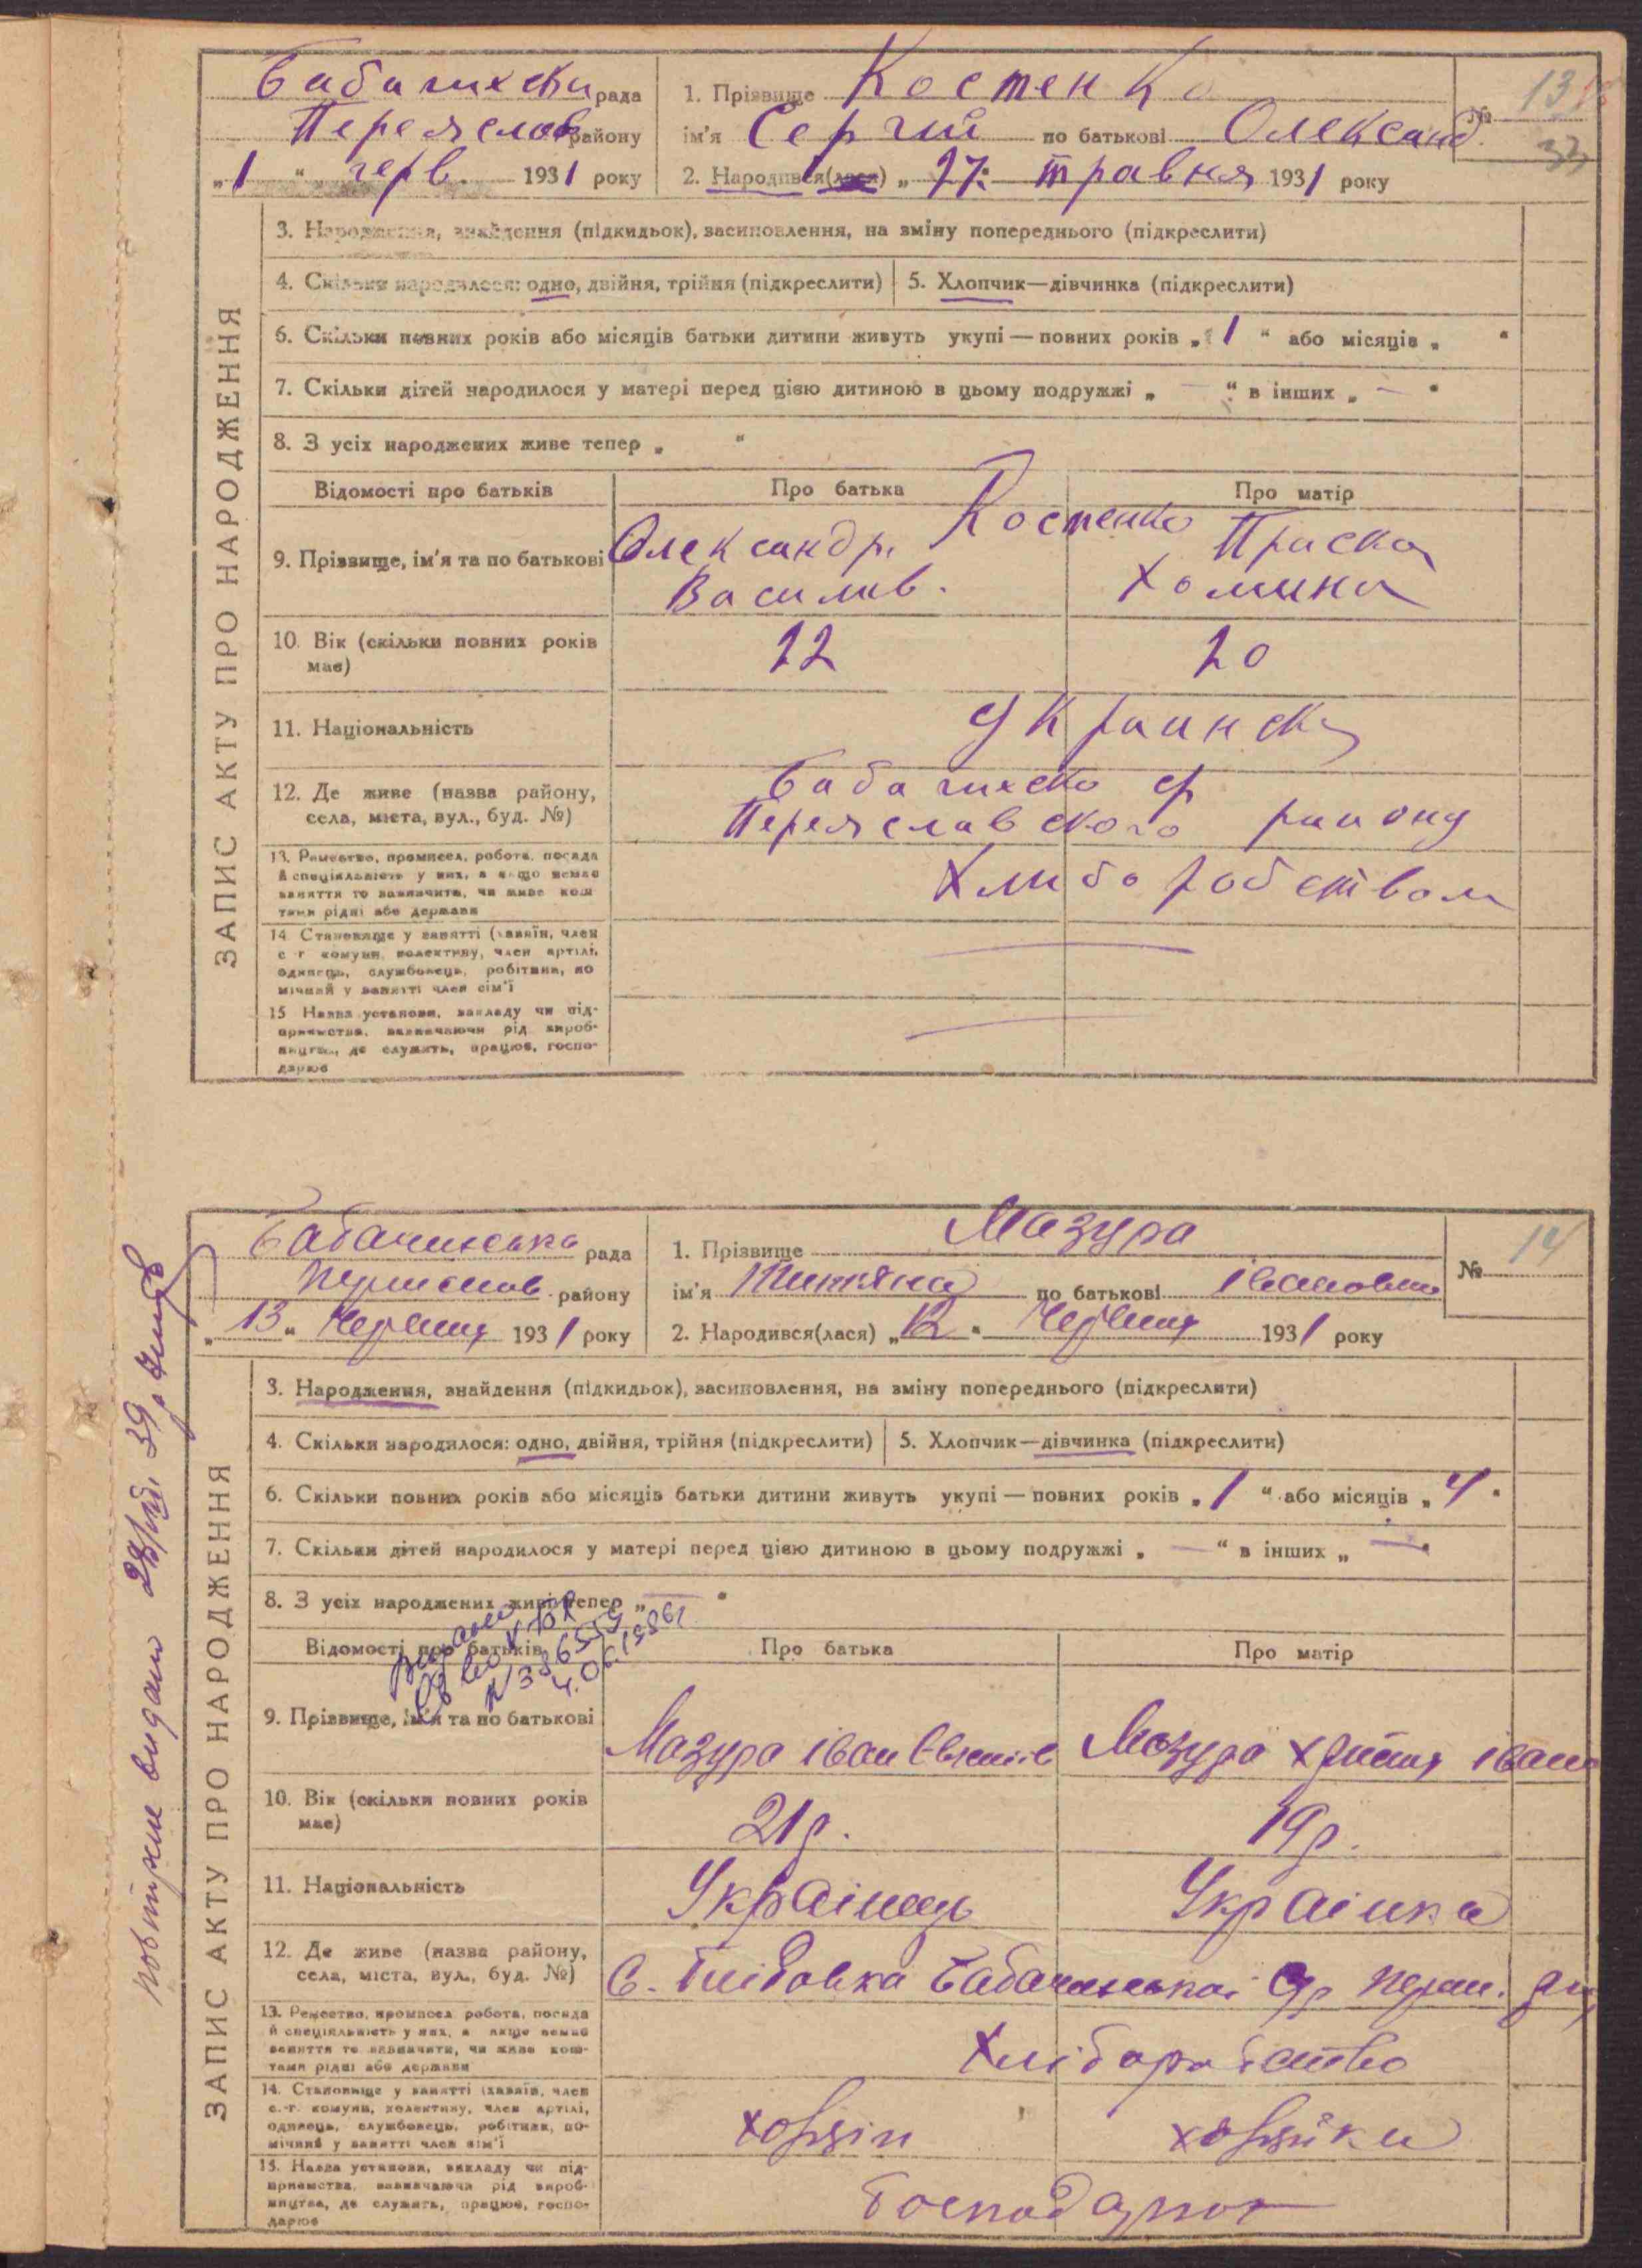 Бабачихска рада
Переяслов району
„1“ черв. 1931 року
1. Прізвище Костенко
ім'я Сергий по батькові Олександ.
2. Народився(лася) „27“ травня 1931 року
№ 13
33
ЗАПИС АКТУ ПРО НАРОДЖЕННЯ
3. Народження, знайдення (підкидьок), засиновлення, на зміну попереднього (підкреслити)
4. Скільки народилося: одно, двійня, трійня (підкреслити) 5. Хлопчик—дівчинка (підкреслити)
6. Скільки повних років або місяців батьки дитини живуть укупі — повних років „1“ або місяців „ “
7. Скільки дітей народилося у матері перед цією дитиною в цьому подружжі „ — “ в інших „ — “
8. З усіх народжених живе тепер „ “
Відомості про батьків Про батька Про матір
9. Прізвище, ім'я та по батькові
Костенко
Олександр. Праска
Василів. Хомина
10. Вік (скільки повних років має) 22 20
11. Національність Украинск
12. Де живе (назва району, села, міста, вул., буд. №)
Бабачихско ср
Переяславского району
13. Ремество, промисел, робота, посада й спеціяльність у них, а якщо немає заняття то зазначити, чи живе коштами рідні або держави
Хлиборобством
14. Становище у занятті (хазяїн, член с.-г. комуни, колективу, член артілі, одинець, службовець, робітник, помічний у занятті член сім'ї —
15. Назва установи, закладу чи підприємства, зазначаючи рід виробництва, де служить, працює, господарює —
Бабачихська рада
району
„13“ Червня 1931 року
1. Прізвище Мазура
ім'я Титяна по батькові Івановна
2. Народився(лася) „12“ Червня 1931 року
№ 14
ЗАПИС АКТУ ПРО НАРОДЖЕННЯ
3. Народження, знайдення (підкидьок), засиновлення, на зміну попереднього (підкреслити)
4. Скільки народилося: одно, двійня, трійня (підкреслити) 5. Хлопчик—дівчинка (підкреслити)
6. Скільки повних років або місяців батьки дитини живуть укупі — повних років „1“ або місяців „4“
7. Скільки дітей народилося у матері перед цією дитиною в цьому подружжі „ — “ в інших „ — “
8. З усіх народжених живе тепер „ — “
Відомості про батьків Про батька Про матір
9. Прізвище, ім'я та по батькові
Мазура Іван Мазура Христя Івано
10. Вік (скільки повних років має) 21 р. 19 р.
11. Національність Українець Українка
12. Де живе (назва району, села, міста, вул., буд. №)
С. Бабачихської ср
13. Ремество, промисел, робота, посада й спеціяльність у них, а якщо немає заняття то зазначити, чи живе коштами рідні або держави
Хліборобство
14. Становище у занятті (хазяїн, член с.-г. комуни, колективу, член артілі, одинець, службовець, робітник, помічний у занятті член сім'ї
хозяін хозяйка
15. Назва установи, закладу чи підприємства, зазначаючи рід виробництва, де служить, працює, господарює
Господарют
повторне видано 39